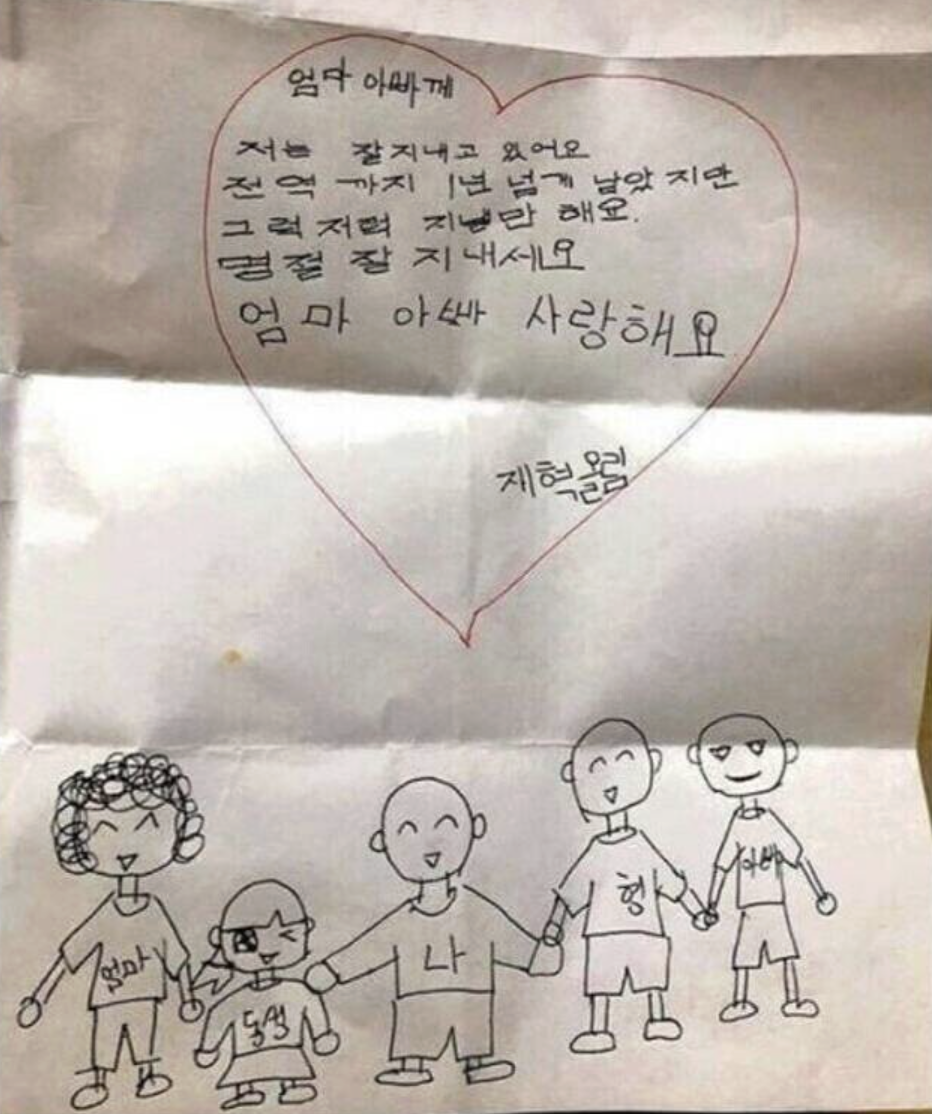 엄마 아빠께
저는 잘지내고 있어요
전역 까지 1년 넘게 남았 지만
그럭 저럭 지낼만 해요.
명절 잘 지내세요
엄마 아빠 사랑해요
재혁올림
엄마
동생
나
형
아빠